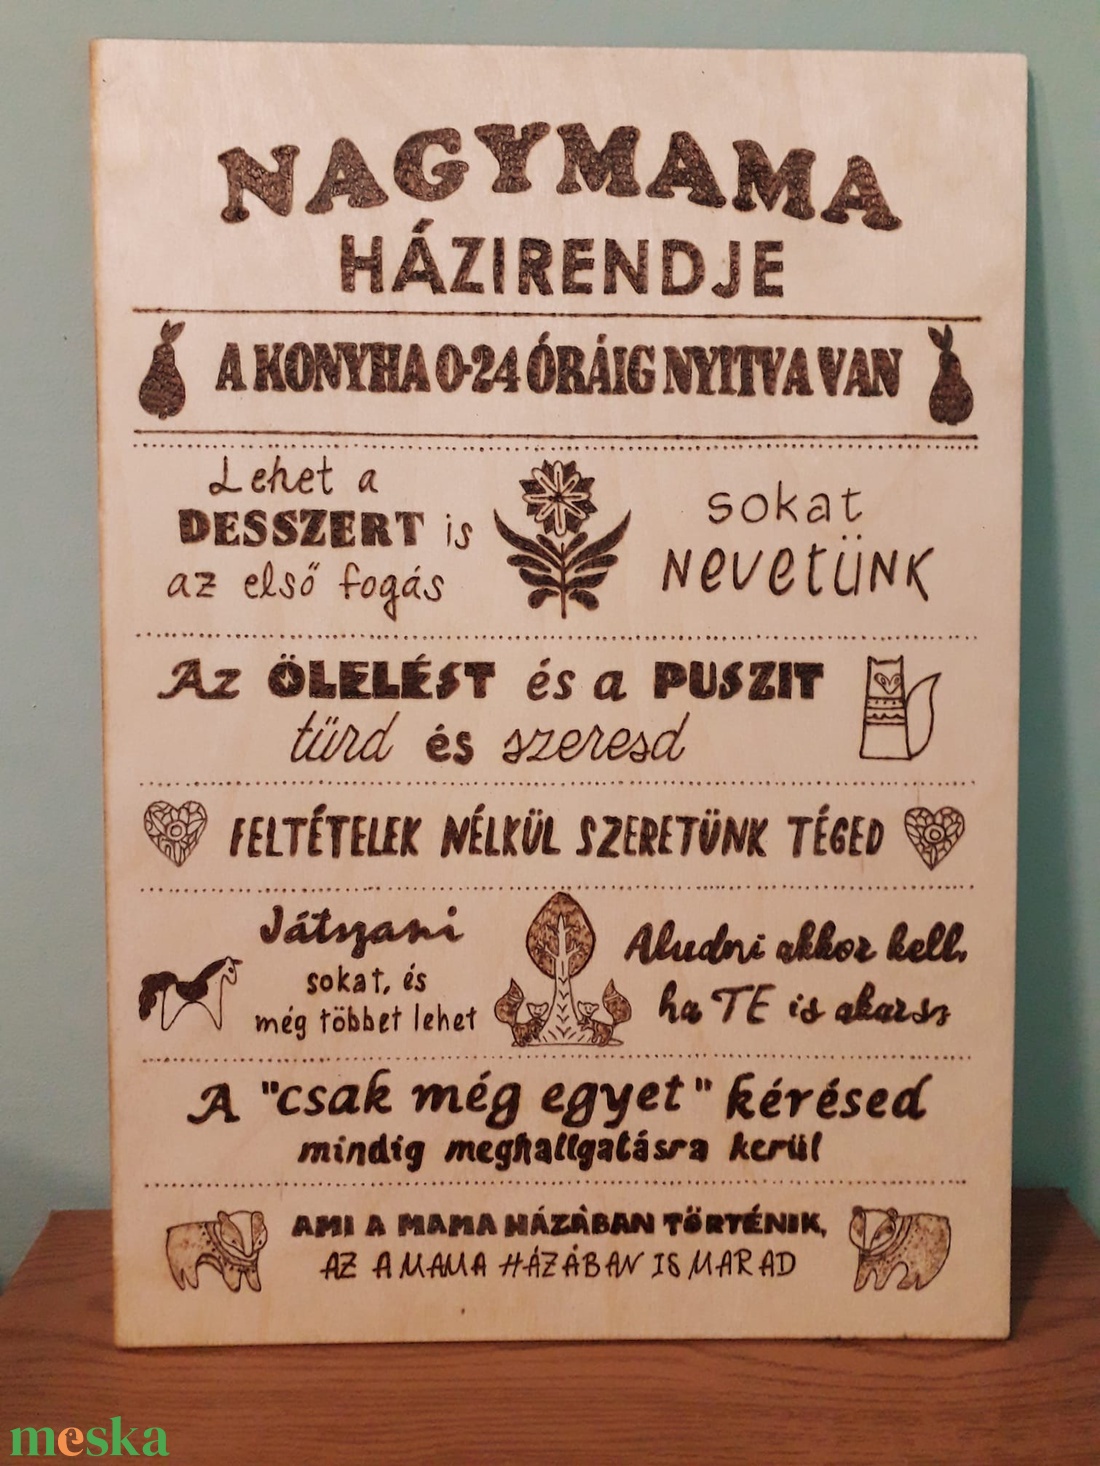 NAGYMAMA
HÁZIRENDJE
A KONYHA 0-24 ÓRÁIG NYITVA VAN
Lehet a
DESSZERT is
az első fogás
sokat
NEVETÜNK
Az ÖLELÉST és a PUSZIT
tűrd és szeresd
FELTÉTELEK NÉLKÜL SZERETÜNK TÉGED
Játszani
sokat, és
még többet lehet
Aludni akkor kell,
ha TE is akarsz
A "csak még egyet" kérésed
mindig meghallgatásra kerül
AMI A MAMA HÁZÁBAN TÖRTÉNIK,
AZ A MAMA HÁZÁBAN IS MARAD
meska